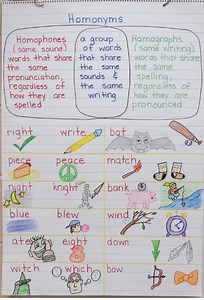 Homonyms
Homophones
(same sound)
words that share
the same
pronunciation,
regardless of
how they are
spelled
a group
of words
that share
the same
sounds &
the same
writing
Homographs
(same writing)
words that share
the same
spelling,
regardless of
how they are
pronounced
right write bat
piece peace match
night knight bank
blue blew wind
ate eight down
witch which bow